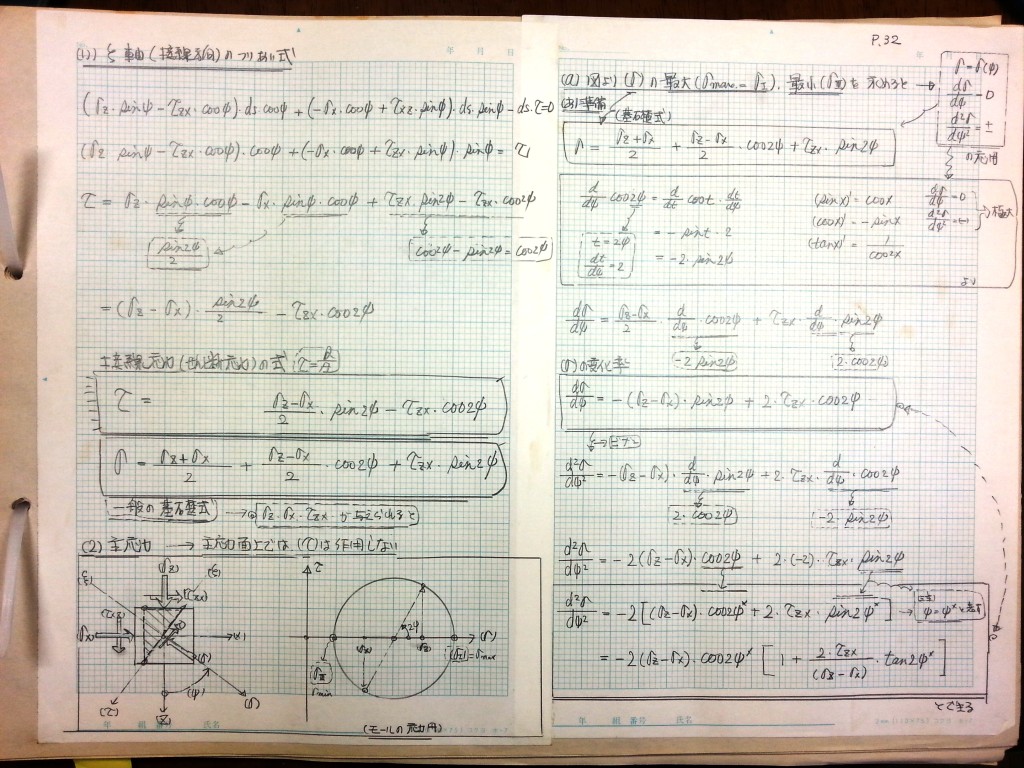 (1)) ξ 軸(接線方向)のつりあい式
(σz・sinψ − τzx・cosψ)ds・cosψ + (−σx・cosψ + τxz・sinψ)・ds・sinψ − ds・τ = 0
(σz・sinψ − τzx・cosψ)・cosψ + (−σx・cosψ + τzx・sinψ)・sinψ = τ
τ = σz・sinψ・cosψ − σx・sinψ・cosψ + τzx・sin²ψ − τzx・cos²ψ
sin2ψ/2
cos²ψ − sin²ψ = cos2ψ
= (σz − σx)・sin2ψ/2 − τzx・cos2ψ
接線応力(せん断応力)の式
τ = (σz − σx)/2・sin2ψ − τzx・cos2ψ
σ = (σz + σx)/2 + (σz − σx)/2・cos2ψ + τzx・sin2ψ
一般の基礎式 → σz・σx・τzx が与えられると
(2) 主応力 → 主応力面上では (τ)は作用しない
(ξ)
σz
(ξ)
τzx
τxz
σx
(x)
(σ)
(ψ)
(τ)
(z)
(σ)
τ
2ψ
(σx)
σz
(σ)
(σI) = σmax
σII
σmin
(モールの応力円)
年 組 番号 氏名
年 月 日
P.32
(a) 図より (σ) の最大(σmax. = σI)、最小(σII)を求めると
σ = σ(ψ)
dσ/dψ = 0
d²σ/dψ² = ±
の応用
(基礎式)
σ = (σz + σx)/2 + (σz − σx)/2・cos2ψ + τzx・sin2ψ
d/dψ cos2ψ = d/dt cost・dt/dψ
t = 2ψ
dt/dψ = 2
= − sint・2
= −2・sin2ψ
(sinx)' = cosx
(cosx)' = −sinx
(tanx)' = 1/cos²x
dσ/dψ = 0
d²σ/dψ² = (−)
極大
より
dσ/dψ = (σz − σx)/2・d/dψ・cos2ψ + τzx・d/dψ・sin2ψ
−2 sin2ψ
2・cos2ψ
(σ)の変化率
dσ/dψ = −(σz − σx)・sin2ψ + 2・τzx・cos2ψ
d²σ/dψ² = −(σz − σx)・d/dψ・sin2ψ + 2・τzx・d/dψ・cos2ψ
2・cos2ψ
−2・sin2ψ
d²σ/dψ² = −2(σz − σx)・cos2ψ + 2・(−2)・τzx・sin2ψ
d²σ/dψ² = −2[(σz − σx)・cos2ψ* + 2・τzx・sin2ψ*]
ψ = ψ* と表す
= −2(σz − σx)・cos2ψ* [1 + 2・τzx/(σz − σx)・tan2ψ*]
とできる
年 組 番号 氏名